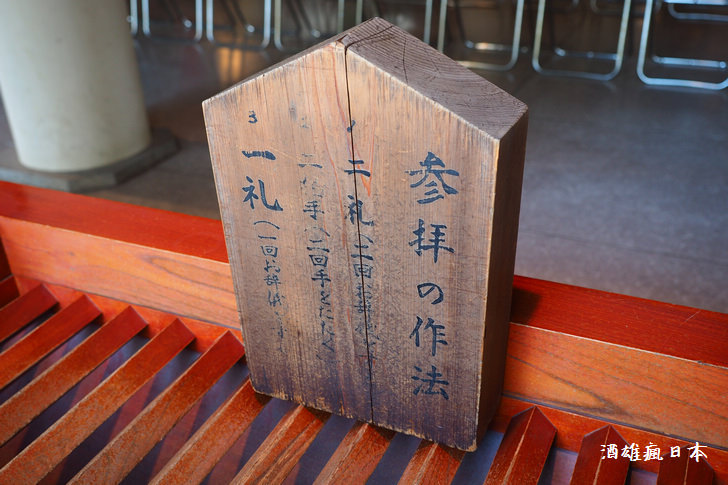 参拝の作法
1 二礼(二回お辞儀
2 二拍手(二回手をたたく
3 一礼(一回お辞儀
酒雄瘋日本